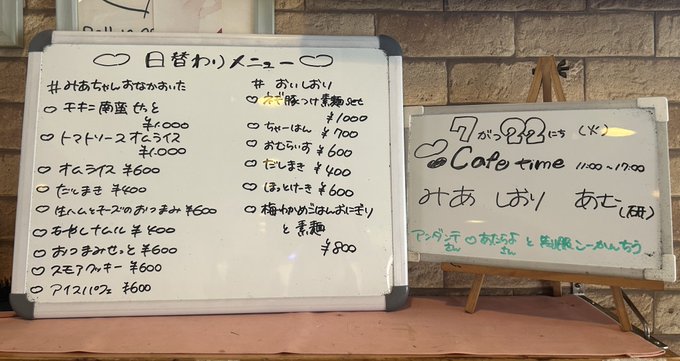 日替わりメニュー
#みあちゃんおなかおいた
チキン南蛮せっと
¥1.000
トマトソースオムライス
¥1.000
オムライス ¥600
だしまき ¥400
生ハムとチーズのおつまみ ¥600
もやしナムル ¥400
おつまみせっと ¥600
スモアクッキー ¥600
アイスパフェ ¥600
# おいしおり
ネギ豚つけ素麺set
¥1000
ちゃーはん ¥700
おむらいす ¥600
だしまき ¥400
ほっとけーき ¥600
梅わかめごはんおにぎり
と素麺
¥800
7がつ22にち (火)
Cafe time 11:00~17:00
みあ しおり あむ(研)
アンダンテさん あたらよさん と 制服こーかんちう